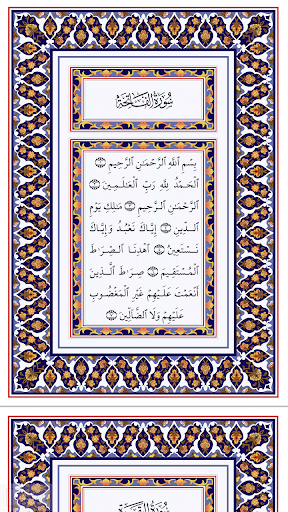 سُورَةُ الْفَاتِحَةِ
بِسْمِ ٱللَّهِ ٱلرَّحْمَٰنِ ٱلرَّحِيمِ ۝
ٱلْحَمْدُ لِلَّهِ رَبِّ ٱلْعَٰلَمِينَ ۝
ٱلرَّحْمَٰنِ ٱلرَّحِيمِ ۝ مَٰلِكِ يَوْمِ
ٱلدِّينِ ۝ إِيَّاكَ نَعْبُدُ وَإِيَّاكَ
نَسْتَعِينُ ۝ ٱهْدِنَا ٱلصِّرَٰطَ
ٱلْمُسْتَقِيمَ ۝ صِرَٰطَ ٱلَّذِينَ
أَنْعَمْتَ عَلَيْهِمْ غَيْرِ ٱلْمَغْضُوبِ
عَلَيْهِمْ وَلَا ٱلضَّآلِّينَ ۝
سُورَةُ الْبَقَرَةِ